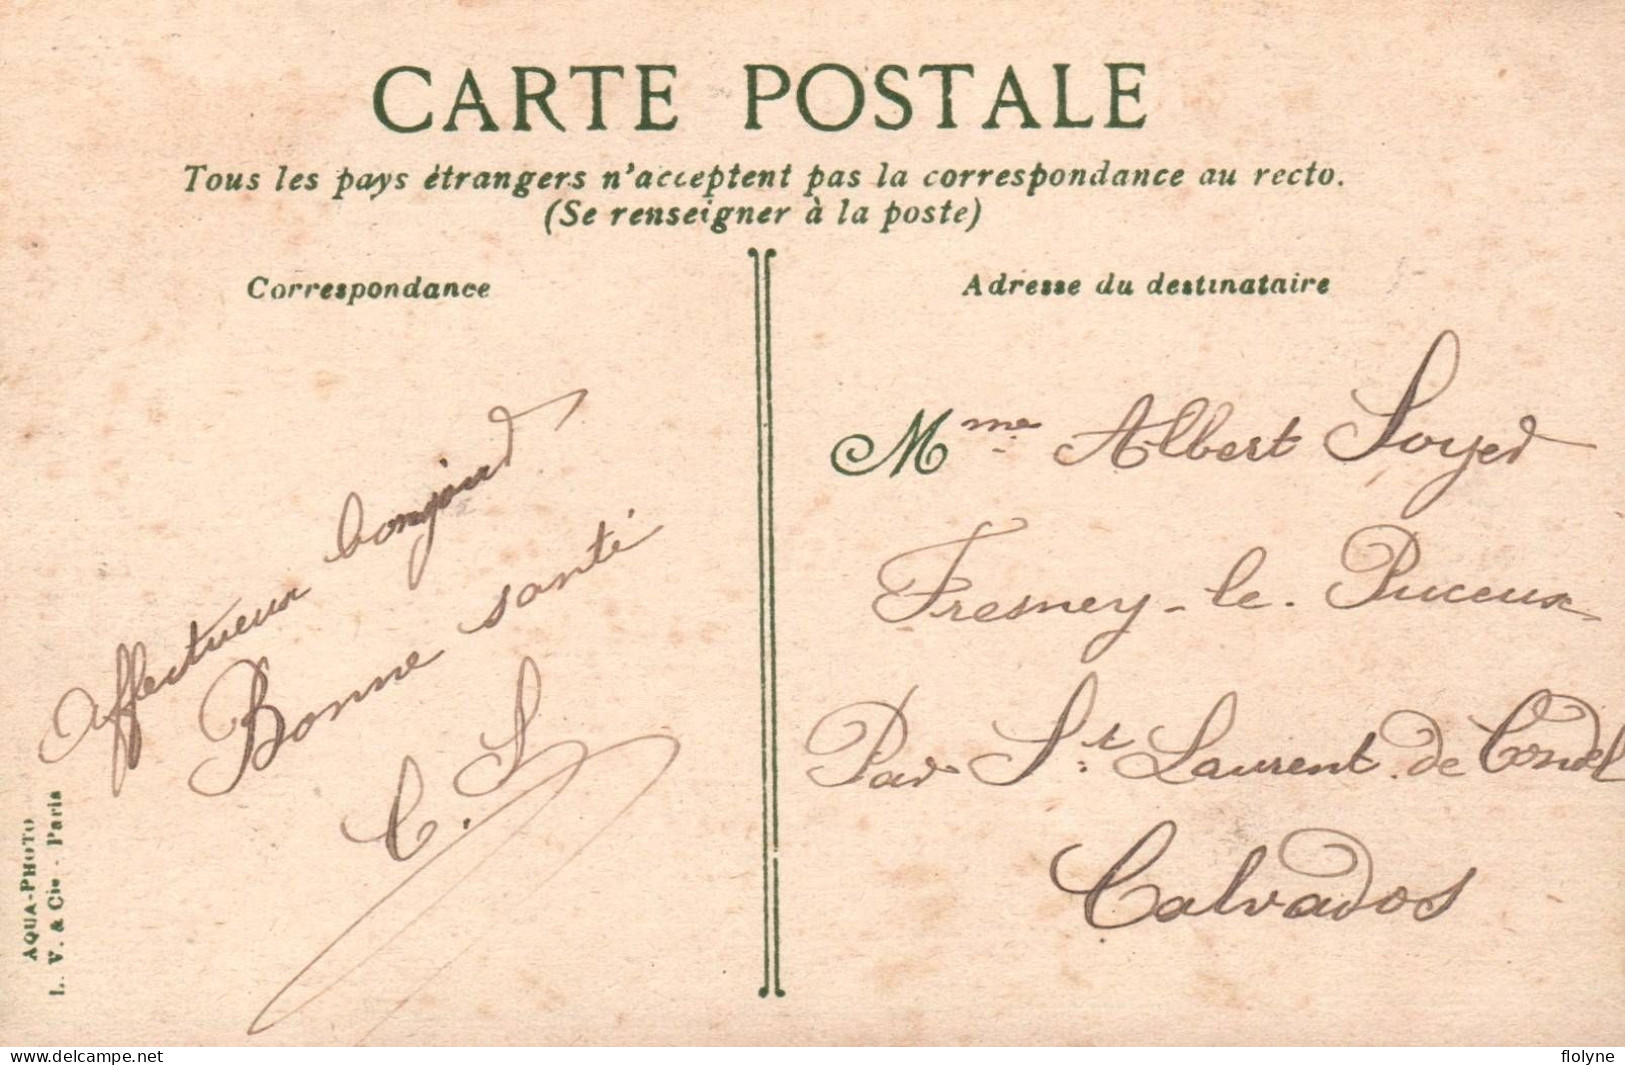 CARTE POSTALE
Tous les pays étrangers n'acceptent pas la correspondance au recto.
(Se renseigner à la poste)
Correspondance
Affectueux bonjour
Bonne santé
C. S
AQUA-PHOTO
L. V. & Cie - Paris
Adresse du destinataire
Mme Albert Soyer
Fresney-le-Puceux
Par St Laurent de Condel
Calvados
delcampe.net
flolyne